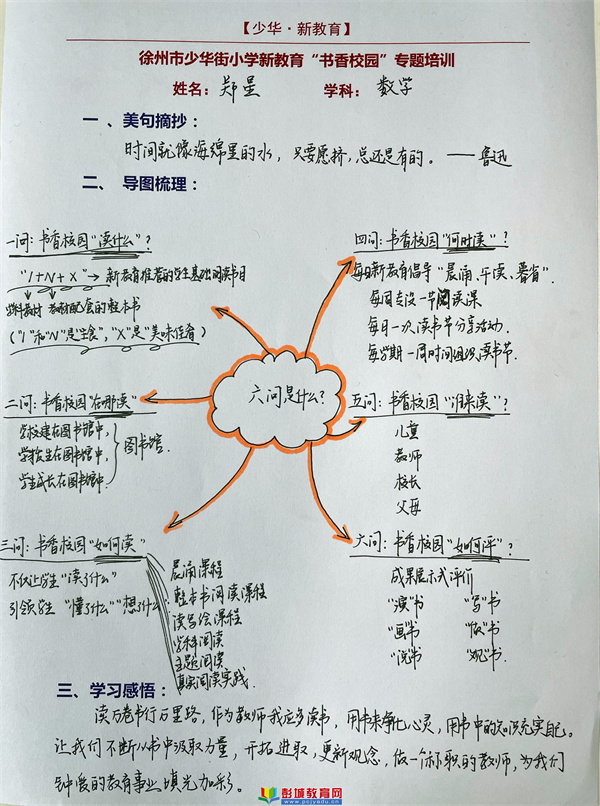 【少华·新教育】
徐州市少华街小学新教育“书香校园”专题培训
姓名：郑星 学科：数学
一、美句摘抄：
时间就像海绵里的水，只要愿挤，总还是有的。——鲁迅
二、导图梳理：
一问：书香校园“读什么”？
“1+N+X”→新教育推荐的学生基础阅读书目
学科教材 教材配套的整本书
（“1”和“N”是“主食”，“X”是“美味佳肴”）
二问：书香校园“在哪读”
学校建在图书馆中，
学校生在图书馆中，
学生成长在图书馆中．
图书馆．
三问：书香校园“如何读”
不仅让学生“读了什么”
引领学生“懂了什么”“想了什么”
晨诵课程
整本书阅读课程
读写绘课程
学科阅读
主题阅读
真实阅读实践．
六问是什么？
四问：书香校园“何时读”？
每日新教育倡导“晨诵、午读、暮省”．
每周专设一节阅读课
每日一次读书节分享活动．
每学期一周时间组织读书节．
五问：书香校园“谁来读”？
儿童
教师
校长
父母
六问：书香校园“如何评”？
成果展示式评价
“演”书 “写”书
“画”书 “做”书
“说”书 “观”书．
三、学习感悟：
读万卷书行万里路，作为教师我应多读书，用书来净化心灵，用书中的知识充实自己。
让我们不断从书中汲取力量，开拓进取，更新观念，做一个称职的教师，为我们
钟爱的教育事业填光加彩。
彭城教育网
www.pcjyedu.cn